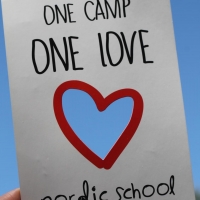 ONE CAMP
ONE LOVE
nordic school